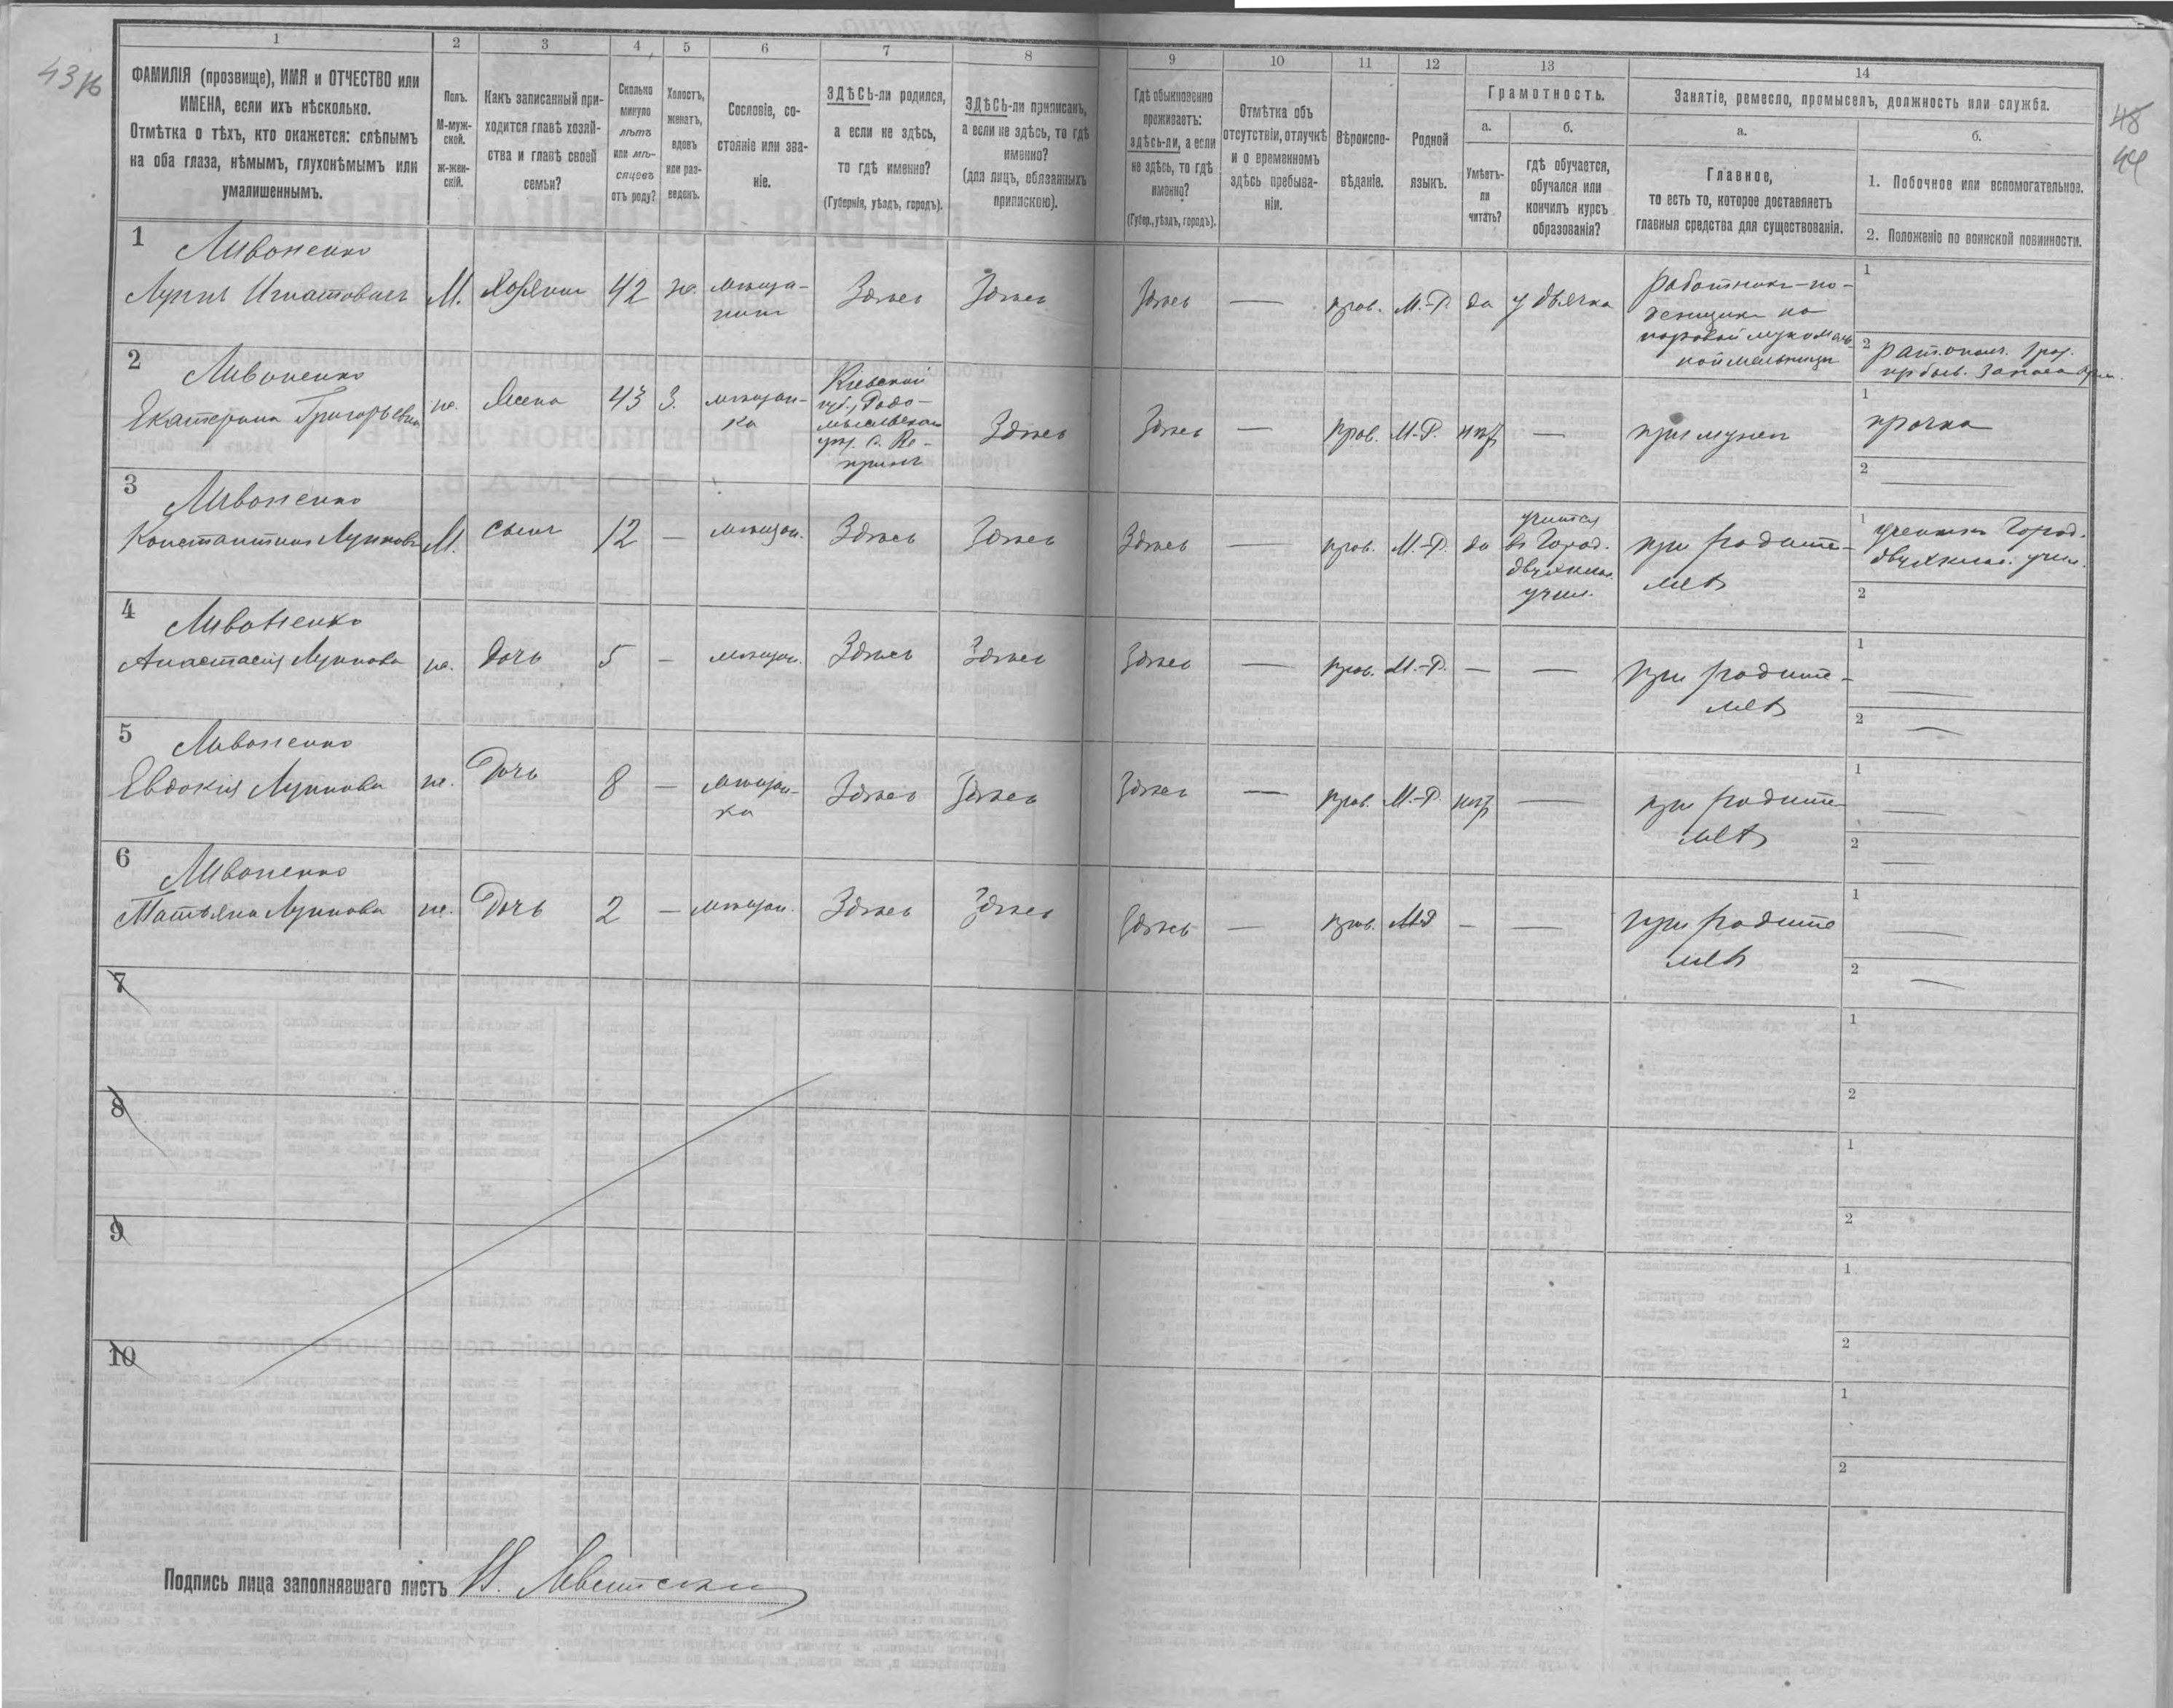 43 16
48
44
1 2 3 4 5 6 7 8 9 10 11 12 13 14
ФАМИЛІЯ (прозвище), ИМЯ и ОТЧЕСТВО или
ИМЕНА, если ихъ нѣсколько.
Отмѣтка о тѣхъ, кто окажется: слѣпымъ
на оба глаза, нѣмымъ, глухонѣмымъ или
умалишеннымъ.
Полъ.
М-муж-
ской.
ж-жен-
скій.
Какъ записанный при-
ходится главѣ хозяй-
ства и главѣ своей
семьи?
Сколько
минуло
лѣтъ
или мѣ-
сяцевъ
отъ роду?
Холостъ,
женатъ,
вдовъ
или раз-
веденъ.
Сословіе, со-
стояніе или зва-
ніе.
ЗДѢСЬ-ли родился,
а если не здѣсь,
то гдѣ именно?
(Губернія, уѣздъ, городъ).
ЗДѢСЬ-ли приписанъ,
а если не здѣсь, то гдѣ
именно?
(для лицъ, обязанныхъ
припискою).
Гдѣ обыкновенно
проживаетъ:
здѣсь-ли, а если
не здѣсь, то гдѣ
именно?
(Губер., уѣздъ, городъ).
Отмѣтка объ
отсутствіи, отлучкѣ
и о временномъ
здѣсь пребыва-
ніи.
Вѣроиспо-
вѣданіе.
Родной
языкъ.
Грамотность.
а.
Умѣетъ-
ли
читать?
б.
гдѣ обучается,
обучался или
кончилъ курсъ
образованія?
Занятіе, ремесло, промыселъ, должность или служба.
а.
Главное,
то есть то, которое доставляетъ
главныя средства для существованія.
б.
1. Побочное или вспомогательное.
2. Положеніе по воинской повинности.
1 Ливоненко
Лукинъ Игнатовичъ М. Хозяинъ 42 ж. мѣща-
нинъ
Здѣсь Здѣсь Здѣсь — прав. М.-Р. да у дьячка
работникъ-по-
денщикъ на
паровой мукомоль-
ной мельницѣ
1
2
2 Ливоненко
Екатерина Григорьевна ж. Жена 43 З. мѣщан-
ка
Кіевской
губ., Радо-
мысльскаго
уѣз. с. Ке-
Здѣсь Здѣсь — прав. М.-Р. нѣт — при мужѣ
1 прачка
2 —
3 Ливоненко
Константинъ Лукинъ М. сынъ 12 — мѣщан. Здѣсь Здѣсь Здѣсь — прав. М.-Р. да
учится
въ Город.
двухклас.
учил.
при родите-
ляхъ
1 ученикъ Город.
двухклас. учил.
2
4 Ливоненко
Анастасія Лукинова ж. дочь 5 — мѣщан. Здѣсь Здѣсь Здѣсь — прав. М.-Р. — — при родите-
ляхъ
1 —
2 —
5 Ливоненко
Евдокія Лукинова ж. Дочь 8 — мѣщан-
ка
Здѣсь Здѣсь Здѣсь — прав. М.-Р. нѣт — при родите
ляхъ
1 —
2 —
6 Ливоненко
Татьяна Лукинова ж. Дочь 2 — мѣщан. Здѣсь Здѣсь Здѣсь — прав. М-Р — — при родите
ляхъ
1 —
2 —
7
1
2
8
1
2
9
1
2
10
1
2
Подпись лица заполнявшаго листъ